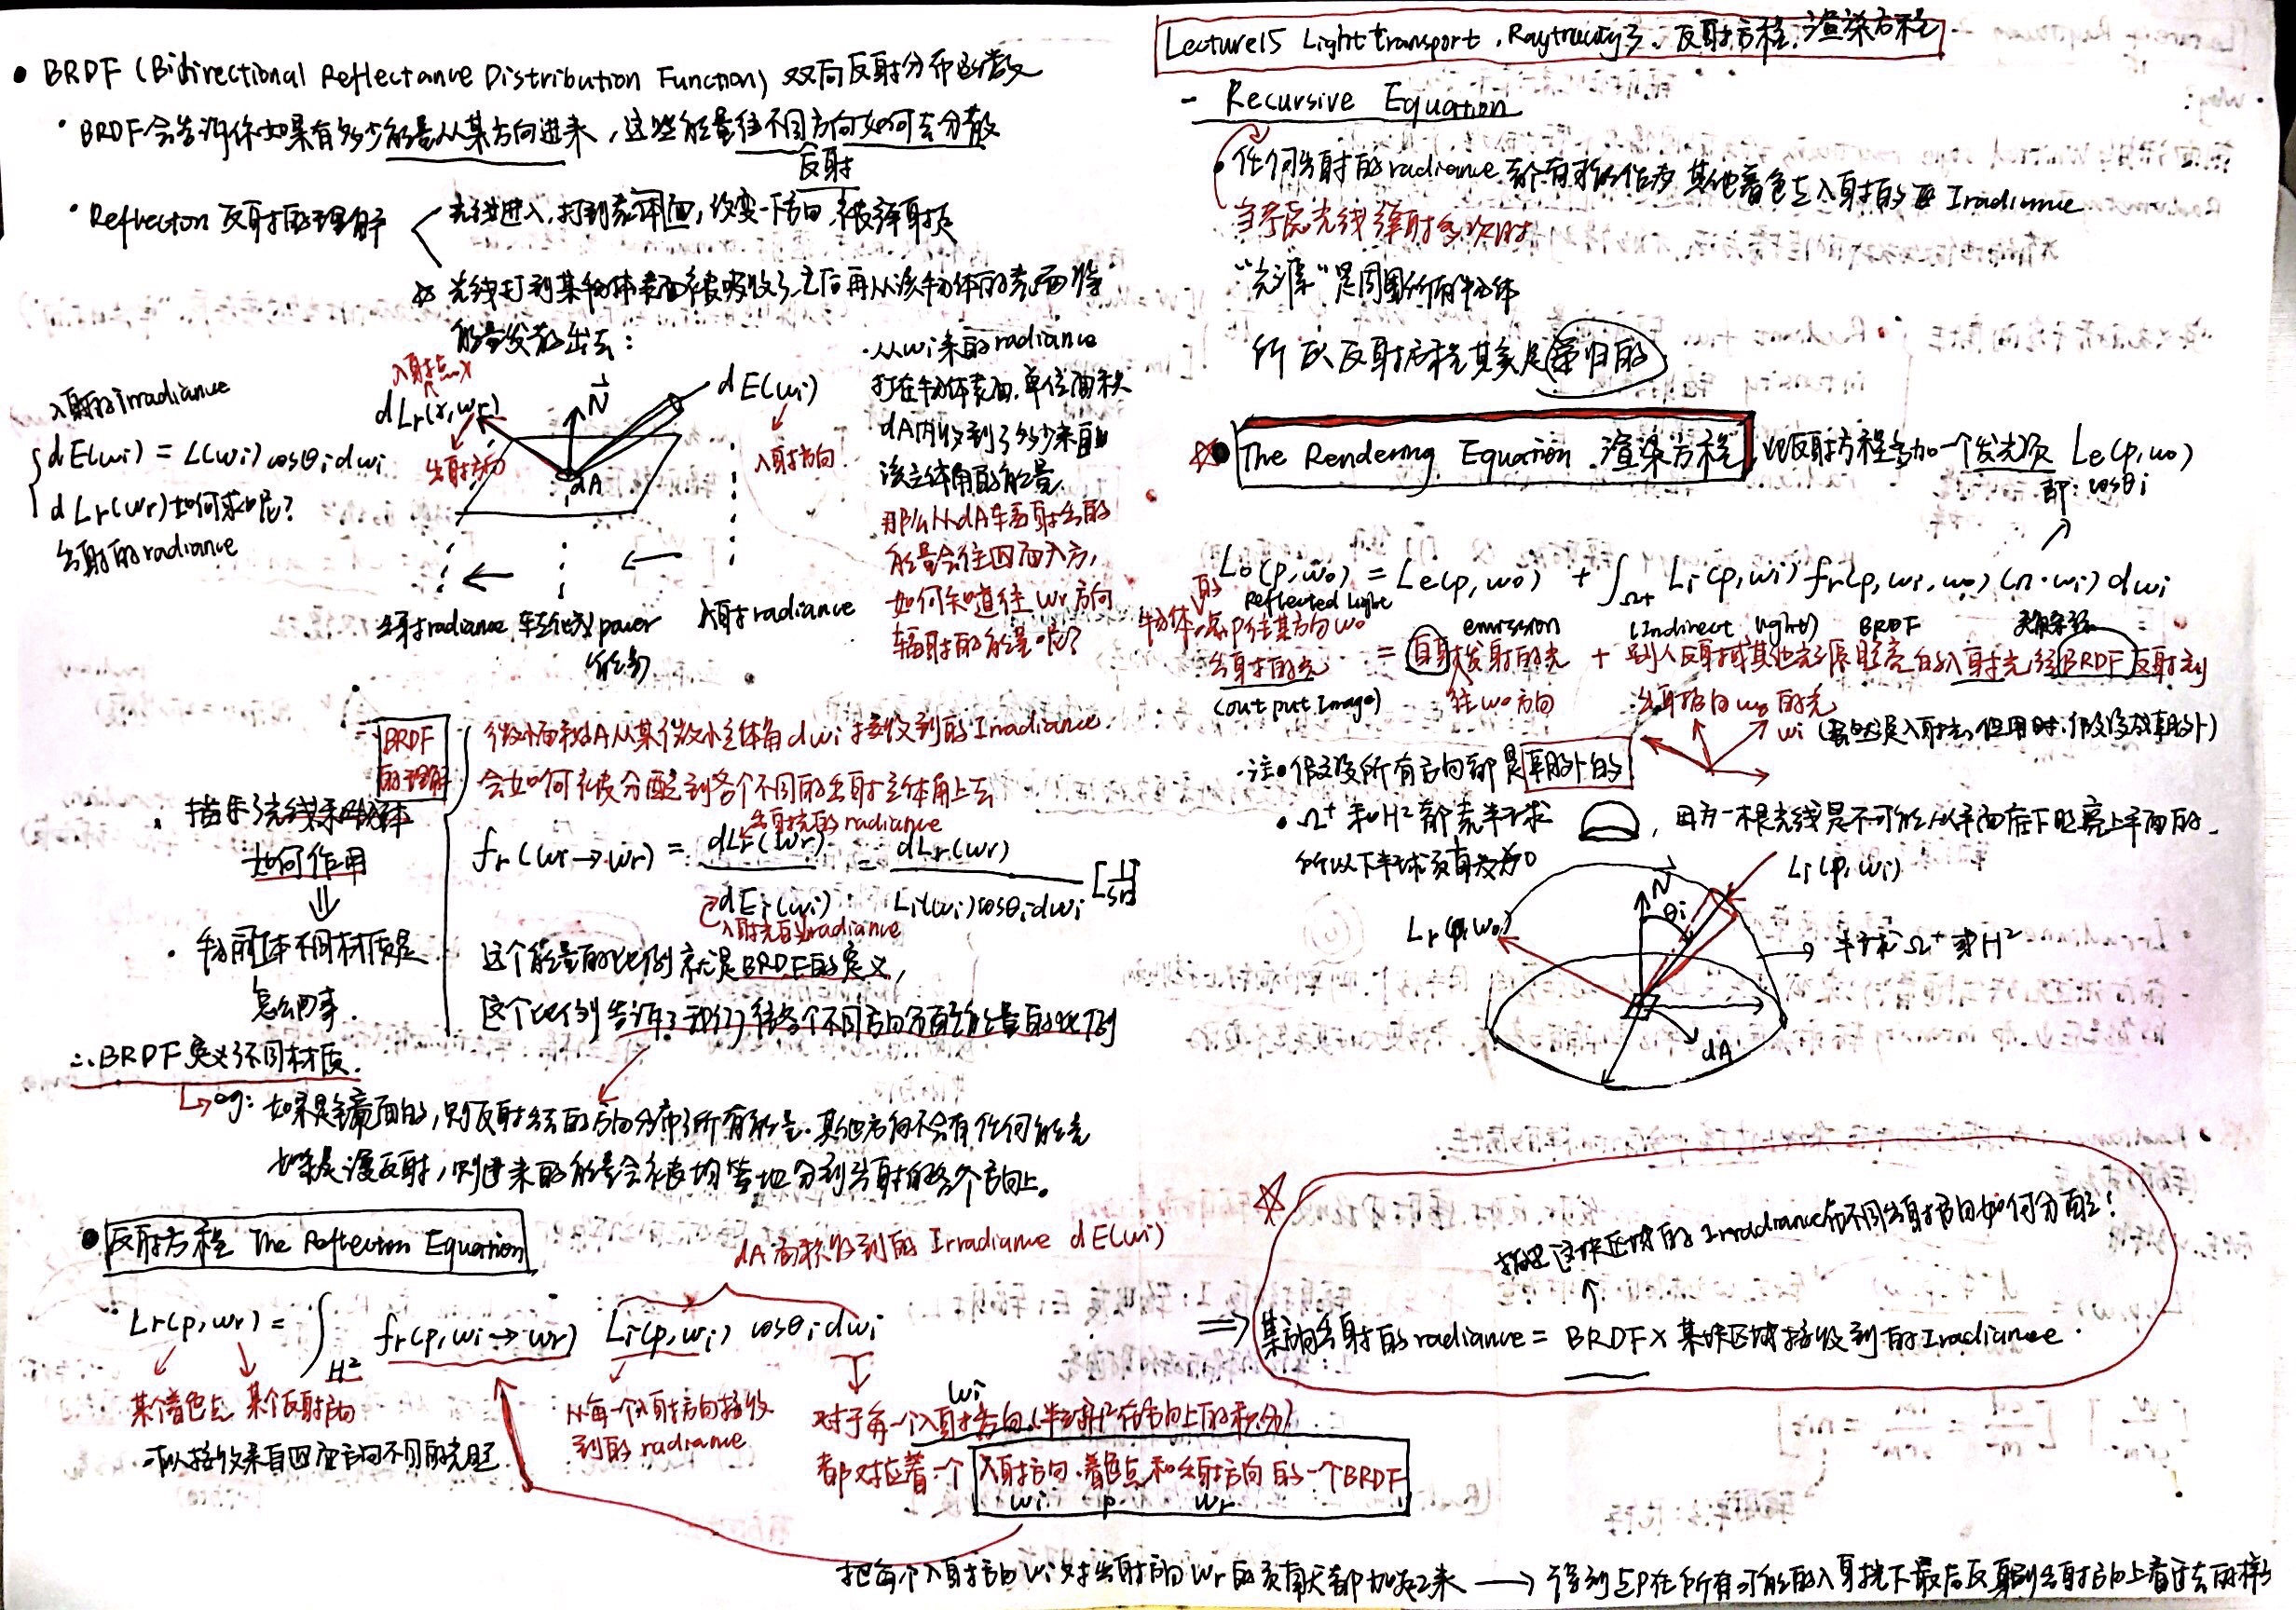 • BRDF (Bidirectional Reflectance Distribution Function) 双向反射分布函数
• BRDF会告诉你如果有多少能量从某方向进来，这些能量往不同方向如何去分散
反射
• Reflection 反射的理解
光线进入，打到物体面，改变一下方向，被弹射走
光线打到某物体表面被吸收了，之后再从该物体的表面将
能量发散出去：
入射的irradiance
dE(wi) = L(wi) cosθi dwi
dLr(wr)如何求呢?
出射的radiance
入射点x
dLr(x,wr)
出射方向
N
dA
dE(wi)
入射方向
出射radiance
power
入射radiance
• 从wi来的radiance
打在物体表面，单位面积
dA内收到了多少来自
该立体角的能量
那么从dA辐射出的
能量会往四面八方，
如何知道往wr方向
辐射的能量呢？
BRDF
的理解
微小面积dA从某个微小立体角dwi接收到的Irradiance
会如何被分配到各个不同的出射立体角上去
出射光的radiance
fr(wi→wr) = dLr(wr) / dEi(wi) = dLr(wr) / Li(wi)cosθidwi [1/sr]
入射光的irradiance
这个能量的比例就是BRDF的定义，
这个比例告诉了我们往各个不同方向分配能量的比例
: 描述了光线和物体
如何作用
⇓
• 物体不同材质是
怎么回事.
∴ BRDF定义了不同材质.
eg: 如果是镜面的，则反射出去的方向分布了所有能量.其他方向不会有任何能量
如果是漫反射，则进来的能量会被均等地分到出射的各个方向上。
• 反射方程 The Reflection Equation
dA面积收到的 Irradiance dE(wi)
Lr(p,wr) = ∫H² fr(p,wi→wr) Li(p,wi) cosθi dwi
某个着色点 某个反射方向
可以接收来自四面方向不同的光照
从每一个入射方向接收
到的 radiance
wi
对于每一个入射方向(半球H²在方向上的积分)
都对应着一个 入射方向、着色点和出射方向的一个BRDF
wi p wr
把每个入射方向wi对出射方向wr的贡献都加起来 → 得到点P在所有可能的入射光下最后反射到出射方向上看过去的样子
Lecture15 Light transport. Raytracing3. 反射方程. 渲染方程
- Recursive Equation
• 任何出射的radiance 都有可能作为 其他着色点入射的 Iradiance
当考虑光线弹射多次时
"光源"是周围所有物体
所以反射方程其实是递归的
• The Rendering Equation 渲染方程 把反射方程多加一个发光项 Le(p,wo)
即: cosθi
Lo(p,wo) = Le(p,wo) + ∫Ω+ Li(p,wi) fr(p,wi,wo) (n·wi) dwi
Reflected Light
emission
(Indirect light)
BRDF
物体的一点p往某方向wo
出射的光
= 自身发射的光 + 别人反射或其他光源照亮的入射光经BRDF反射到
(output Image)
往wo方向
出射方向wo的光
wi (虽然是入射光，但用时，假设成朝外)
• 注• 假设所有方向都是朝外的
• Ω+ 和H² 都表半球 ，因为一根光线是不可能从平面底下照亮上平面的.
所以下半球贡献为0
Li(p,wi)
N
θi
Lr(p,wo)
半球Ω+ 或H²
dA
描述这块区域的Irradiance向不同出射方向如何分配！
⇒ 某方向出射的radiance = BRDF × 某块区域接收到的Iradiance.